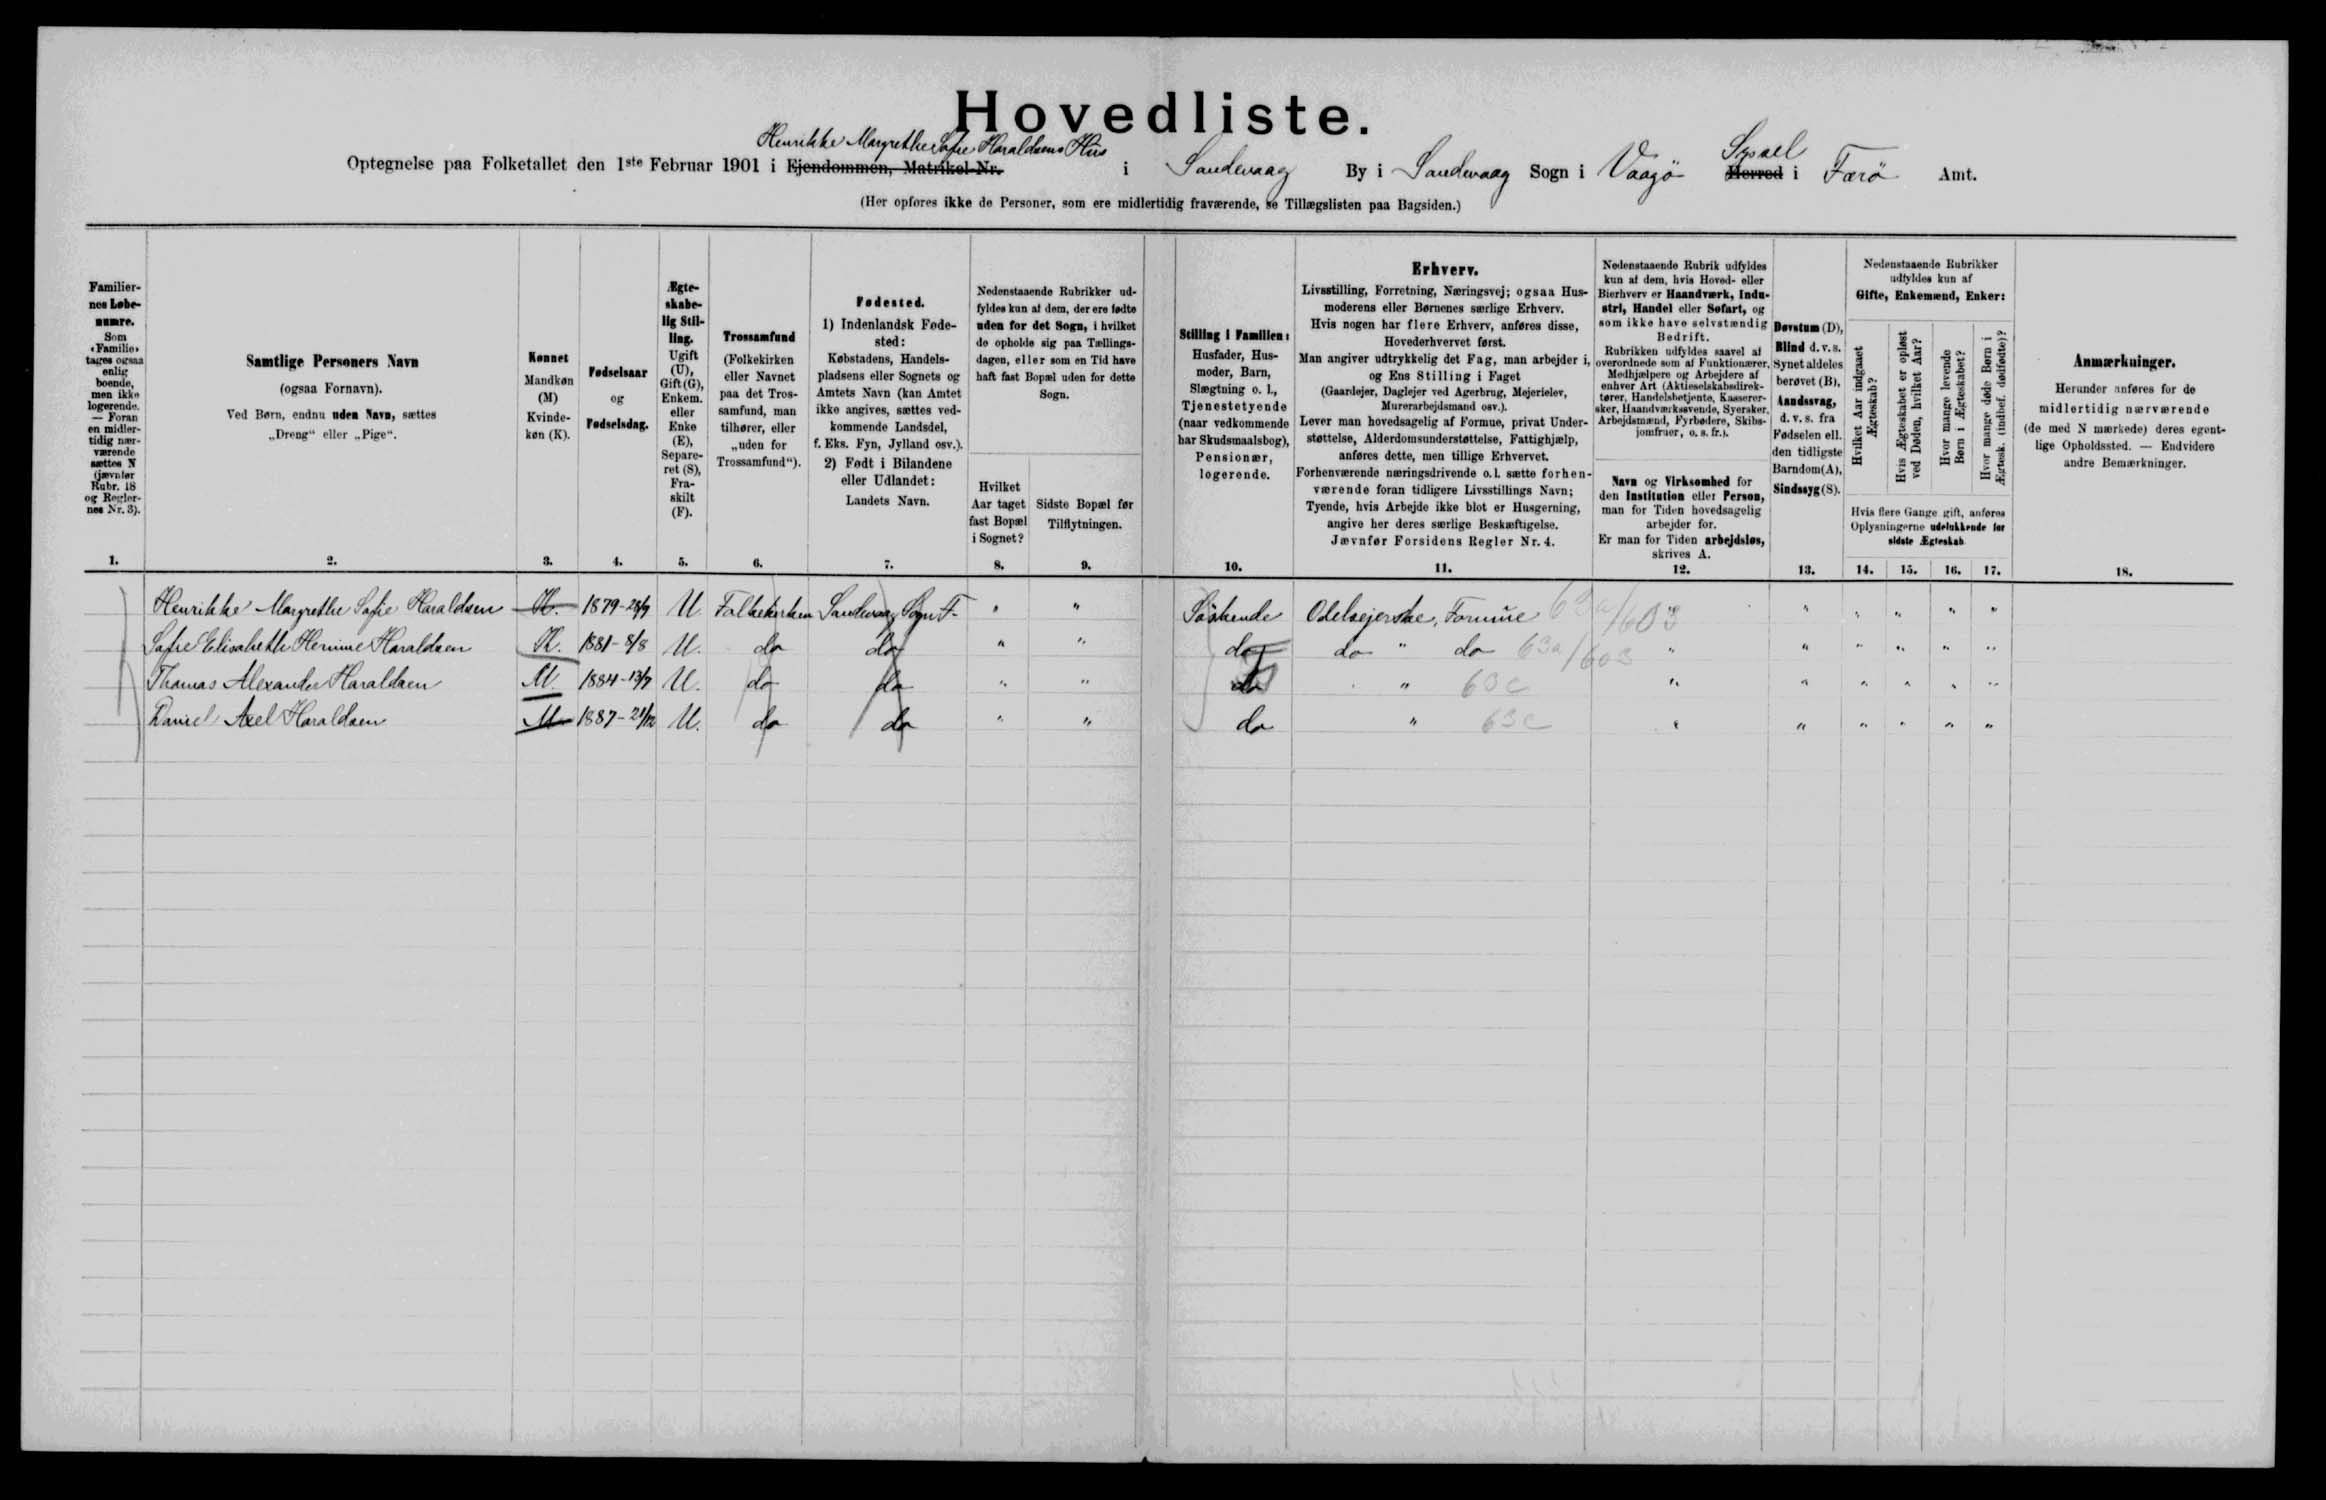 Hovedliste.
Henrikke Margrethe Sofie Haraldsens Hus
Sysael
Optegnelse paa Folketallet den 1ste Februar 1901 i Ejendommen, Matrikel-Nr. i Sandevaag By i Sandevaag Sogn i Vaagö Herred i Færö Amt.
(Her opføres ikke de Personer, som ere midlertidig fraværende, se Tillægslisten paa Bagsiden.)
Familier-
nes Løbe-
numre.
Som
«Familie»
tages ogsaa
enlig
boende,
men ikke
logerende.
— Foran
en midler-
tidig nær-
værende
sættes N
(jævnfør
Rubr. 18
og Regler-
nes Nr. 3).
1.
Samtlige Personers Navn
(ogsaa Fornavn).
Ved Børn, endnu uden Navn, sættes
„Dreng“ eller „Pige“.
2.
Kønnet
Mandkøn
(M)
Kvinde-
køn (K).
3.
Fødselsaar
og
Fødselsdag.
4.
Ægte-
skabe-
lig Stil-
ling.
Ugift
(U),
Gift (G),
Enkem.
eller
Enke
(E),
Separe-
ret (S),
Fra-
skilt
(F).
5.
Trossamfund
(Folkekirken
eller Navnet
paa det Tros-
samfund, man
tilhører, eller
„uden for
Trossamfund“).
6.
Fødested.
1) Indenlandsk Føde-
sted:
Købstadens, Handels-
pladsens eller Sognets og
Amtets Navn (kan Amtet
ikke angives, sættes ved-
kommende Landsdel,
f. Eks. Fyn, Jylland osv.).
2) Født i Bilandene
eller Udlandet:
Landets Navn.
7.
Nedenstaaende Rubrikker ud-
fyldes kun af dem, der ere fødte
uden for det Sogn, i hvilket
de opholde sig paa Tællings-
dagen, eller som en Tid have
haft fast Bopæl uden for dette
Sogn.
Hvilket
Aar taget
fast Bopæl
i Sognet?
8.
Sidste Bopæl før
Tilflytningen.
9.
Stilling i Familien:
Husfader, Hus-
moder, Barn,
Slægtning o. l.,
Tjenestetyende
(naar vedkommende
har Skudsmaalsbog),
Pensionær,
logerende.
10.
Erhverv.
Livsstilling, Forretning, Næringsvej; ogsaa Hus-
moderens eller Børnenes særlige Erhverv.
Hvis nogen har flere Erhverv, anføres disse,
Hovederhvervet først.
Man angiver udtrykkelig det Fag, man arbejder i,
og Ens Stilling i Faget
(Gaardejer, Daglejer ved Agerbrug, Mejerielev,
Murerarbejdsmand osv.).
Lever man hovedsagelig af Formue, privat Under-
støttelse, Alderdomsunderstøttelse, Fattighjælp,
anføres dette, men tillige Erhvervet.
Forhenværende næringsdrivende o. l. sætte forhen-
værende foran tidligere Livsstillings Navn;
Tyende, hvis Arbejde ikke blot er Husgerning,
angive her deres særlige Beskæftigelse.
Jævnfør Forsidens Regler Nr. 4.
11.
Nedenstaaende Rubrik udfyldes
kun af dem, hvis Hoved- eller
Bierhverv er Haandværk, Indu-
stri, Handel eller Søfart, og
som ikke have selvstændig
Bedrift.
Rubrikken udfyldes saavel af
overordnede som af Funktionærer,
Medhjælpere og Arbejdere af
enhver Art (Aktieselskabsdirek-
tører, Handelsbetjente, Kasserer-
sker, Haandværkssvende, Syersker,
Arbejdsmænd, Fyrbødere, Skibs-
jomfruer, o. s. fr.).
Navn og Virksomhed for
den Institution eller Person,
man for Tiden hovedsagelig
arbejder for.
Er man for Tiden arbejdsløs,
skrives A.
12.
Døvstum (D),
Blind d. v. s.
Synet aldeles
berøvet (B),
Aandssvag,
d. v. s. fra
Fødselen ell.
den tidligste
Barndom (A),
Sindssyg (S).
13.
Nedenstaaende Rubrikker
udfyldes kun af
Gifte, Enkemænd, Enker:
Hvilket Aar indgaaet
Ægteskab?
Hvis Ægteskabet er opløst
ved Døden, hvilket Aar?
Hvor mange levende
Børn i Ægteskabet?
Hvor mange døde Børn i
Ægtesk. (indbef. dødfødte)?
Hvis flere Gange gift, anføres
Oplysningerne udelukkende for
sidste Ægteskab
14. 15. 16. 17.
Anmærkninger.
Herunder anføres for de
midlertidig nærværende
(de med N mærkede) deres egent-
lige Opholdssted. — Endvidere
andre Bemærkninger.
18.
Henrikke Margrethe Sofie Haraldsen K. 1879-28/9 U Folkekirken Sandevaag Sogn F. " " Söskende Odelsejerske, Formue 63a/603 " " " " " "
Sofie Elisabeth Hermine Haraldsen K. 1881-8/8 U. do do " " do do " do 63a/603 " " " " " "
Thomas Alexander Haraldsen M. 1884-13/7 U. do do " " do " 63c " " " " " "
Daniel Axel Haraldsen M 1887-21/12 U. do do " " do " 63c " " " " " "